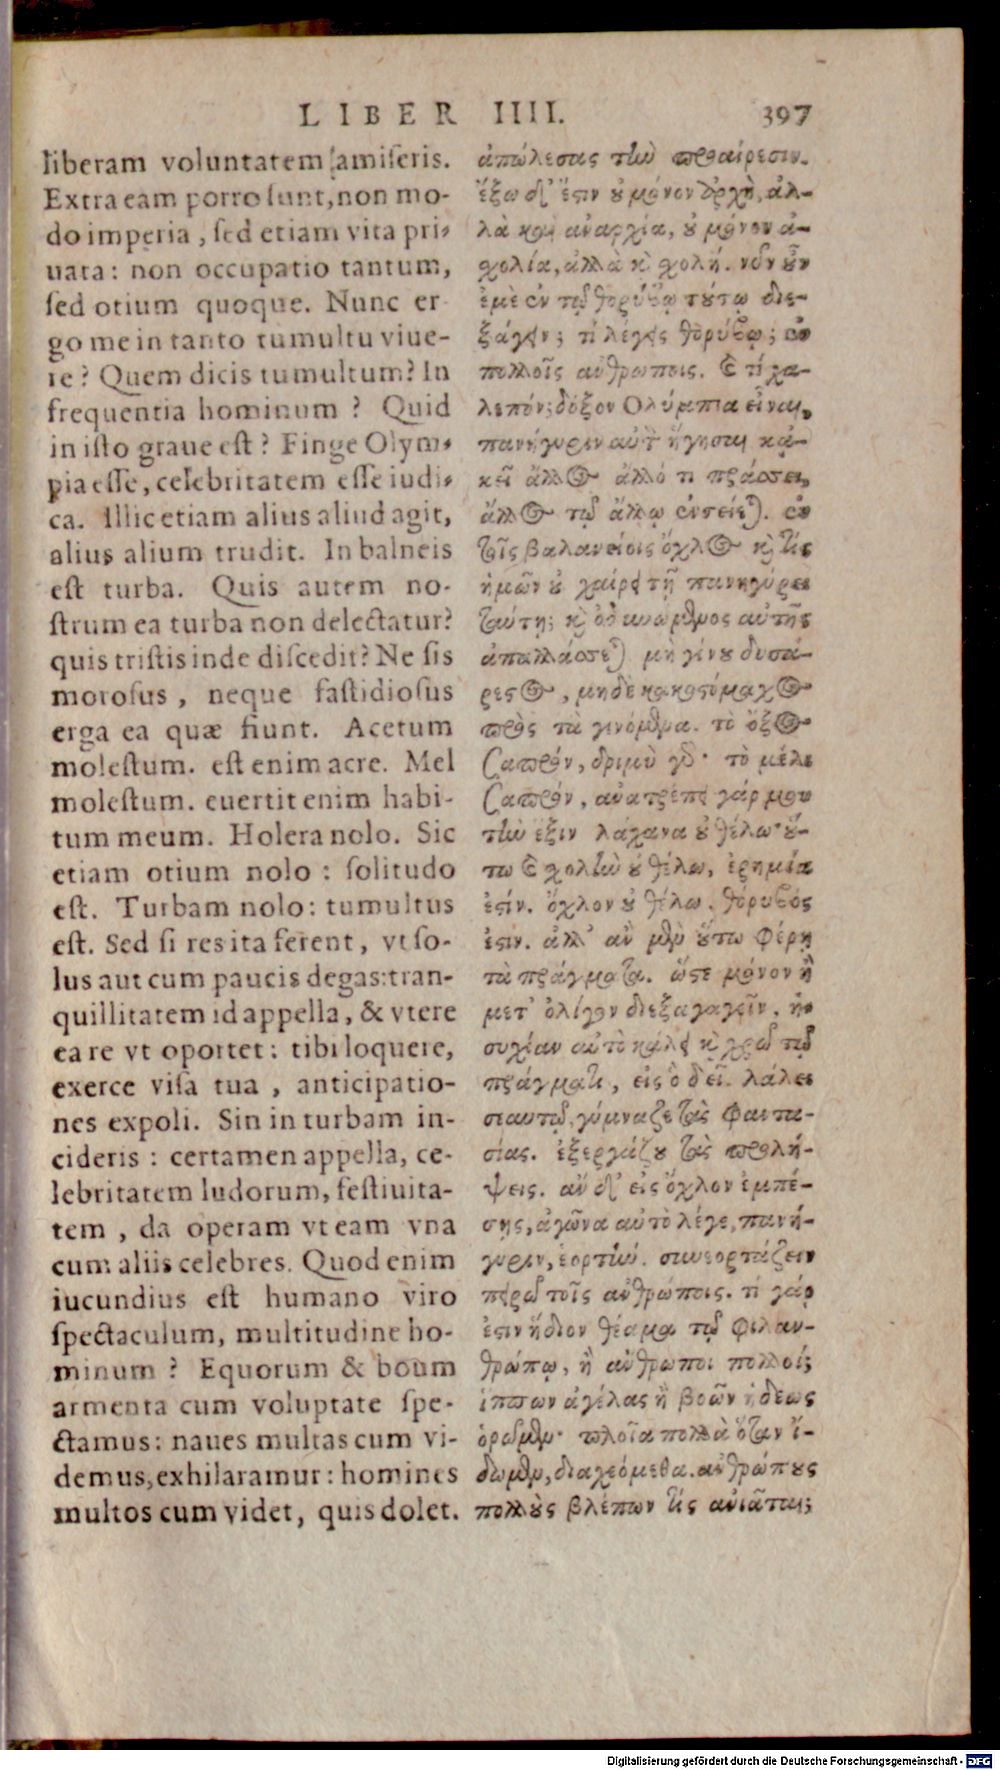 LIBER IIII. 397
liberam voluntatem amiſeris.
Extra eam porro ſunt, non mo-
do imperia, ſed etiam vita pri-
uata: non occupatio tantum,
ſed otium quoque. Nunc er
go me in tanto tumultu viue-
re? Quem dicis tumultum? In
frequentia hominum? Quid
in iſto graue eſt? Finge Olym-
pia eſſe, celebritatem eſſe iudi-
ca. Illic etiam alius aliud agit,
alius alium trudit. In balneis
eſt turba. Quis autem no-
ſtrum ea turba non delectatur?
quis triſtis inde diſcedit? Ne ſis
moroſus, neque faſtidioſus
erga ea quæ fiunt. Acetum
moleſtum. eſt enim acre. Mel
moleſtum. euertit enim habi-
tum meum. Holera nolo. Sic
etiam otium nolo: ſolitudo
eſt. Turbam nolo: tumultus
eſt. Sed ſi res ita ferent, vt ſo-
lus aut cum paucis degas: tran-
quillitatem id appella, & vtere
ea re vt oportet: tibi loquere,
exerce viſa tua, anticipatio-
nes expoli. Sin in turbam in-
cideris: certamen appella, ce-
lebritatem ludorum, feſtiuita-
tem, da operam vt eam vna
cum aliis celebres. Quod enim
iucundius eſt humano viro
ſpectaculum, multitudine ho-
minum? Equorum & boum
armenta cum voluptate ſpe-
ctamus: naues multas cum vi-
demus, exhilaramur: homines
multos cum videt, quis dolet.
ἀπώλεσας τὴν προαίρεσιν.
ἔξω δ' ἔστιν οὐ μόνον ἀρχὴ, ἀλ-
λὰ καὶ ἀναρχία, οὐ μόνον ἀ-
σχολία, ἀλλὰ καὶ σχολή. νῦν οὖν
ἐμὲ ἐν τῷ θορύβῳ τούτῳ διε-
ξάγειν; τί λέγεις θορύβῳ; ἐν
πολλοῖς ἀνθρώποις. καὶ τί χα-
λεπόν; δόξον Ολύμπια εἶναι,
πανήγυριν αὐτὸ ἥγησαι κἀ-
κεῖ ἄλλος ἄλλό τι πράσσει,
ἄλλος τῷ ἄλλῳ ἐνσείεται. ἐν
τοῖς βαλανείοις ὄχλος καὶ τίς
ἡμῶν οὐ χαίρει τῇ πανηγύρει
ταύτῃ; καὶ ὀδυνώμενος αὐτῆς
ἀπαλλάσσεται μὴ γίνου δυσά-
ρεστος, μηδὲ κακοστόμαχος
πρὸς τὰ γινόμενα. τὸ ὄξος
σαπρόν, δριμὺ γάρ· τὸ μέλι
σαπρόν, ἀνατρέπει γάρ μου
τὴν ἕξιν λάχανα οὐ θέλω· οὕ-
τω καὶ σχολὴν οὐ θέλω, ἐρημία
ἐστίν. ὄχλον οὐ θέλω. θόρυβός
ἐστιν. ἀλλ' ἂν μὲν οὕτω φέρῃ
τὰ πράγματα. ὥστε μόνον ἢ
μετ' ὀλίγων διεξαγαγεῖν, ἡ-
συχίαν αὐτὸ κάλει καὶ χρῶ τῷ
πράγματι, εἰς ὃ δεῖ. λάλει
σεαυτῷ, γύμναζε τὰς φαντα-
σίας. ἐξεργάζου τὰς προλή-
ψεις. ἂν δ' εἰς ὄχλον ἐμπέ-
σῃς, ἀγῶνα αὐτὸ λέγε, πανή-
γυριν, ἑορτήν. συνεορτάζειν
πειρῶ τοῖς ἀνθρώποις. τί γάρ
ἐστιν ἥδιον θέαμα τῷ φιλαν-
θρώπῳ, ἢ ἄνθρωποι πολλοί;
ἵππων ἀγέλας ἢ βοῶν ἡδέως
ὁρῶμεν· πλοῖα πολλὰ ὅταν ἴ-
δωμεν, διαχεόμεθα. ἀνθρώπους
πολλοὺς βλέπων τίς ἀνιᾶται;
Digitalisierung gefördert durch die Deutsche Forschungsgemeinschaft - DFG